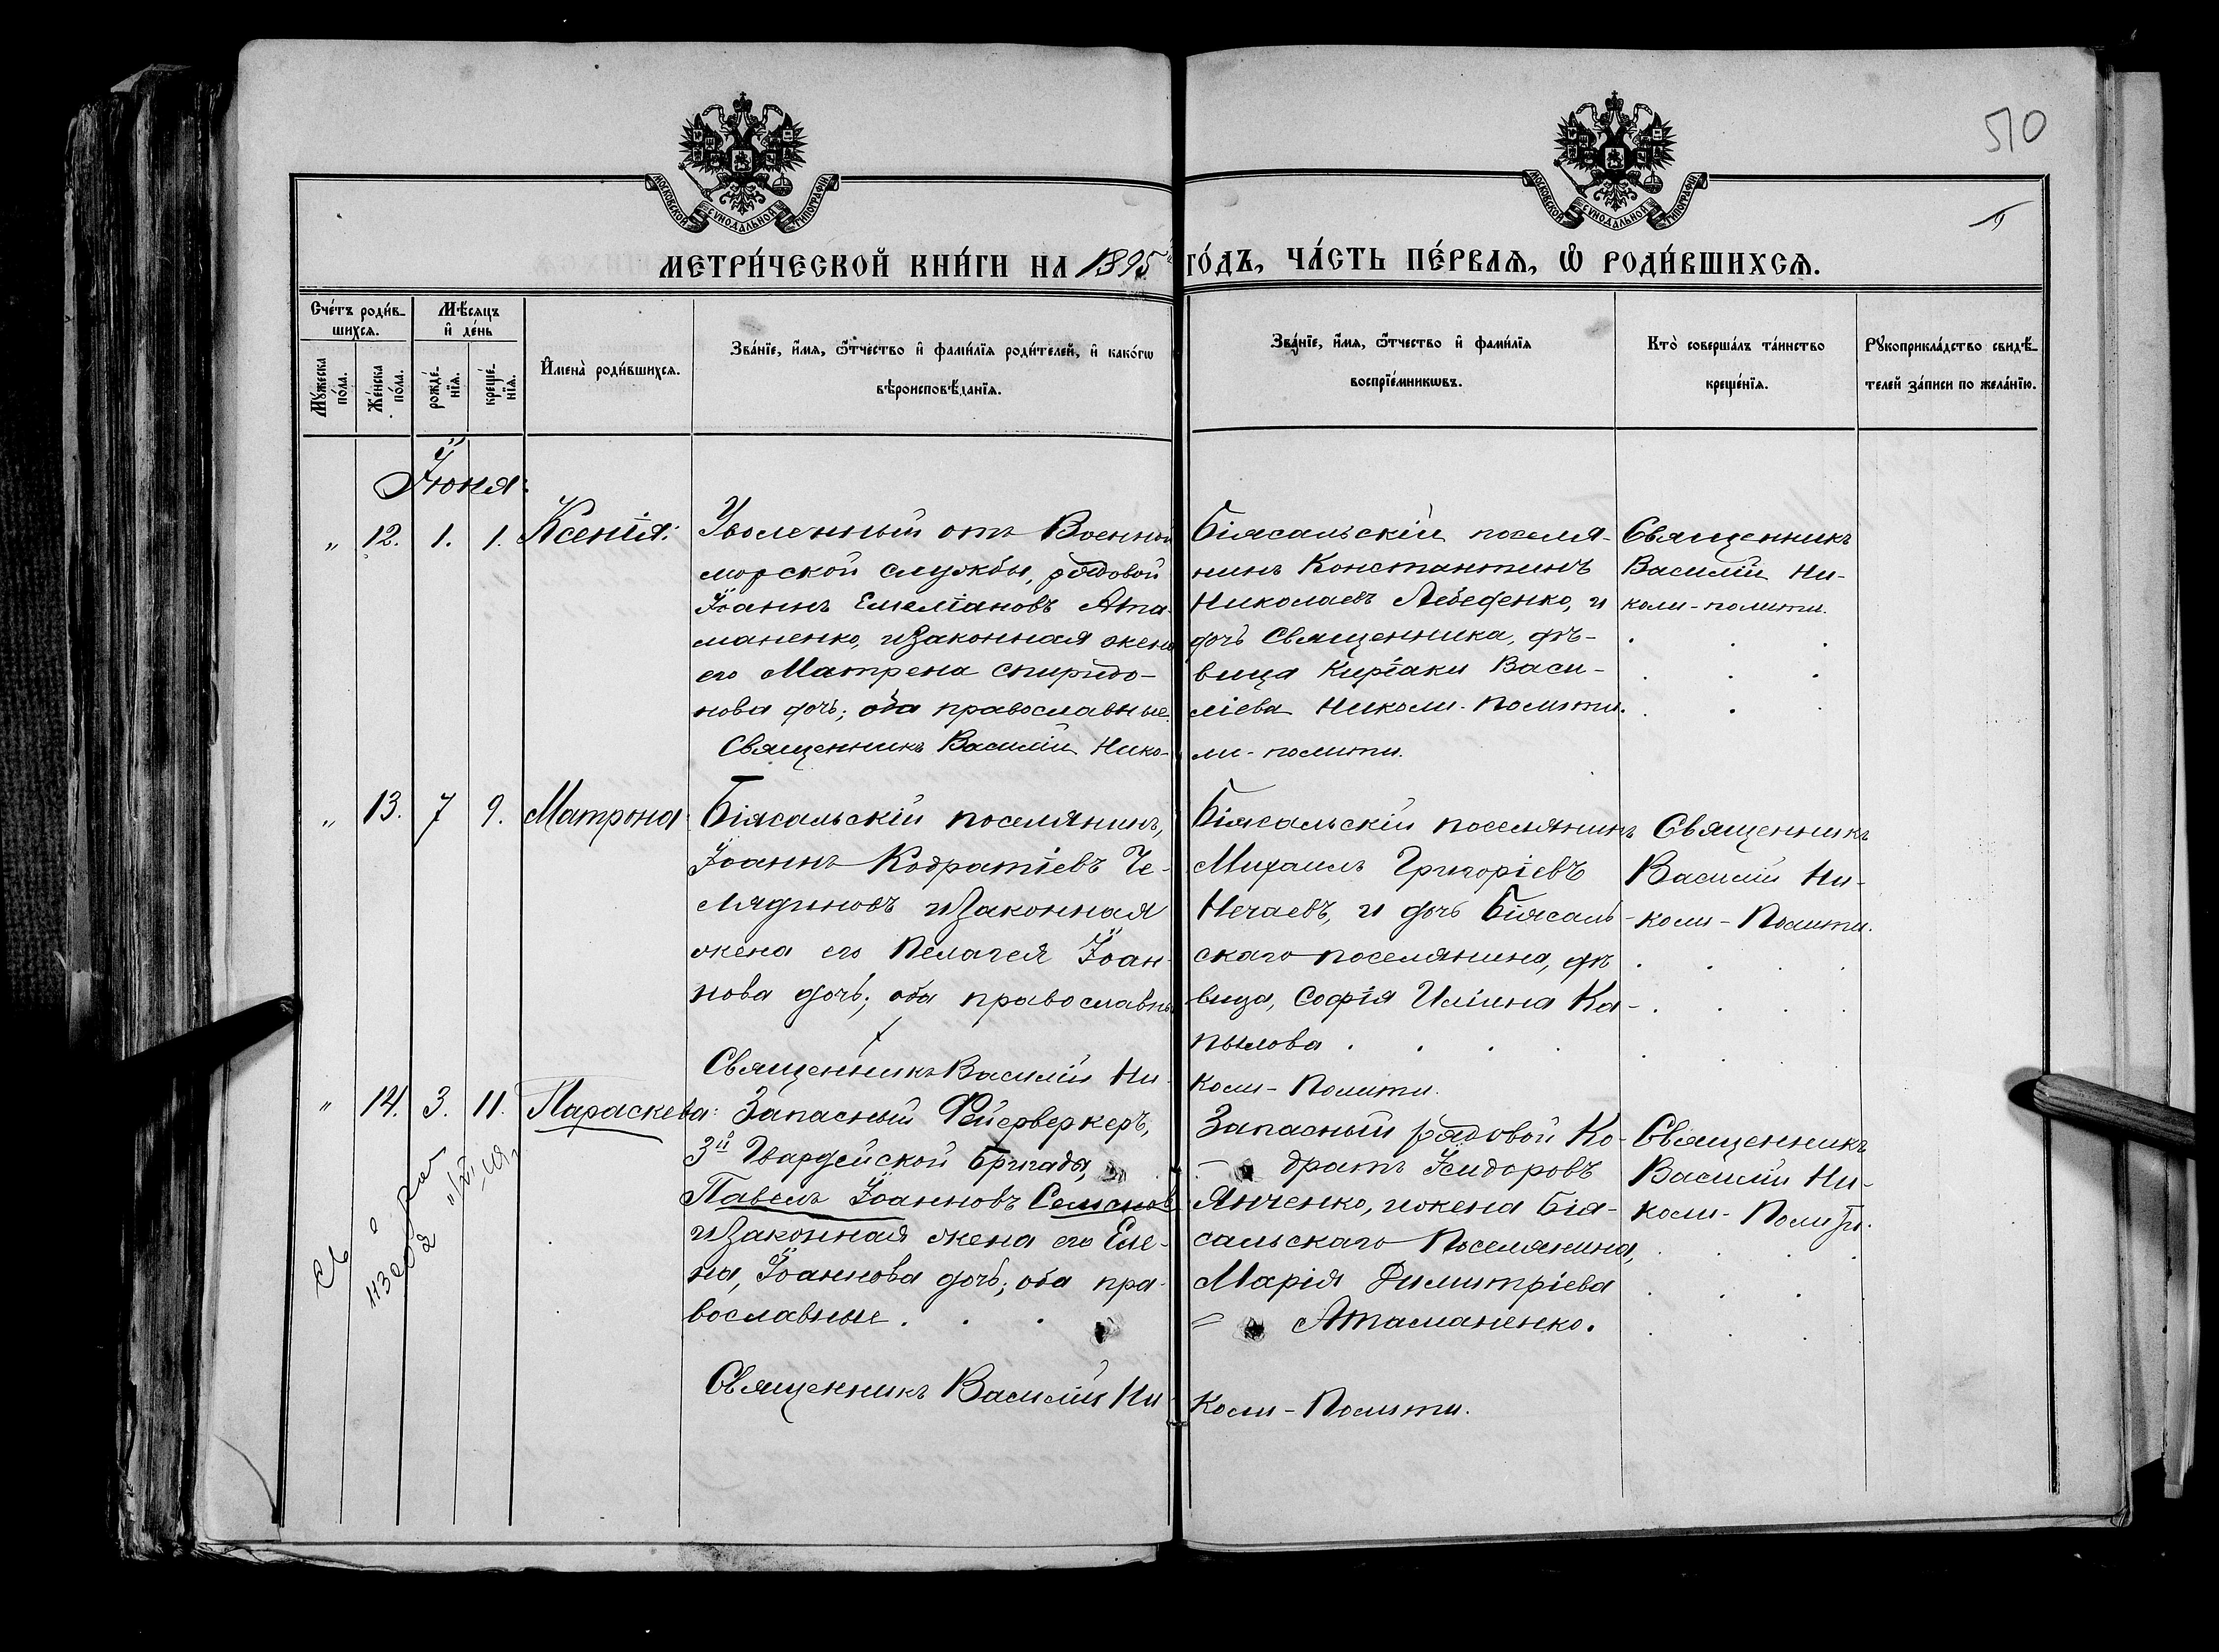 510
МОСКОВСКОЙ СѴНОДАЛЬНОЙ ТИПОГРАФІИ
МОСКОВСКОЙ СѴНОДАЛЬНОЙ ТИПОГРАФІИ
МЕТРИ́ЧЕСКОЙ КНИ́ГИ НА 1895й ГО́ДЪ, ЧА́СТЬ ПЕ́РВАЯ, Ѡ҆ РОДИ́ВШИХСЯ.
Сче́тъ роди́в-
шихся.
Мѣ́сяцъ
и҆ де́нь
Му́жеска
по́ла.
Же́нска
по́ла.
рожде́-
нїя.
креще́-
нїя.
И҆мена̀ роди́вшихся.
Зва́нїе, и҆́мя, ѻ҆́тчество и҆ фами́лїя роди́телей, и҆ како́гѡ
вѣроисповѣ́данїя.
Зва́нїе, и҆́мя, ѻ҆́тчество и҆ фами́лїя
воспрїе́мникѡвъ.
Кто̀ соверша́лъ та́инство
креще́нїя.
Рꙋкоприкла́дство свидѣ́-
телей за́писи по жела́нїю.
Іюня:
„ 12. 1. 1. Ксенія:
Уволенный отъ Военной
морской службы, рядовой
Іоаннъ Емеліановъ Ата-
маненко, и законная жена
его Матрена Спиридо-
нова дочь; оба православные.
Священникъ Василій Нико-
Біясальскій поселя-
нинъ Константинъ
Николаевъ Лебеденко, и
дочь Священника, дѣ-
вица Киріаки Васи-
ліева Николи-Полити.
ли-полити.
Священникъ
Василій Ни-
коли-полити.
„ 13. 7 9. Матрона
Біясальскій поселянинъ,
Іоаннъ Кодратіевъ Че-
лядиновъ и законная
жена его Пелагея Іоан-
нова дочь; оба православны
Священникъ Василій Ни-
Біясальскій поселянинъ
Михаилъ Григоріевъ
Нечаевъ, и дочь Біясаль-
скаго поселянина, дѣ
вица, Софія Иліина Ка-
пылова
коли-Полити.
Священникъ
Василій Ни-
коли-Полити.
„ 14. 3. 11. Параскева:
Запасный Фейерверкеръ,
3й Гвардейской бригады,
Павелъ Іоанновъ Семенов
и законная жена его Еле-
на, Іоаннова дочь; оба пра-
вославные.
Священникъ Василій Ни-
Запасный рядовой Ко-
дратъ Исидоровъ
Янченко, и жена Бія-
сальскаго Поселянина,
Марія Димитріева
Атаманенко.
Коли-Полити.
Священникъ
Василій Ни-
коли-Полити.